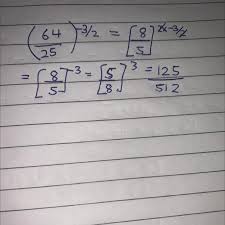 (64/25)^-3/2 = [8/5]^2x-3/2
= [8/5]^-3 = [5/8]^3 = 125/512